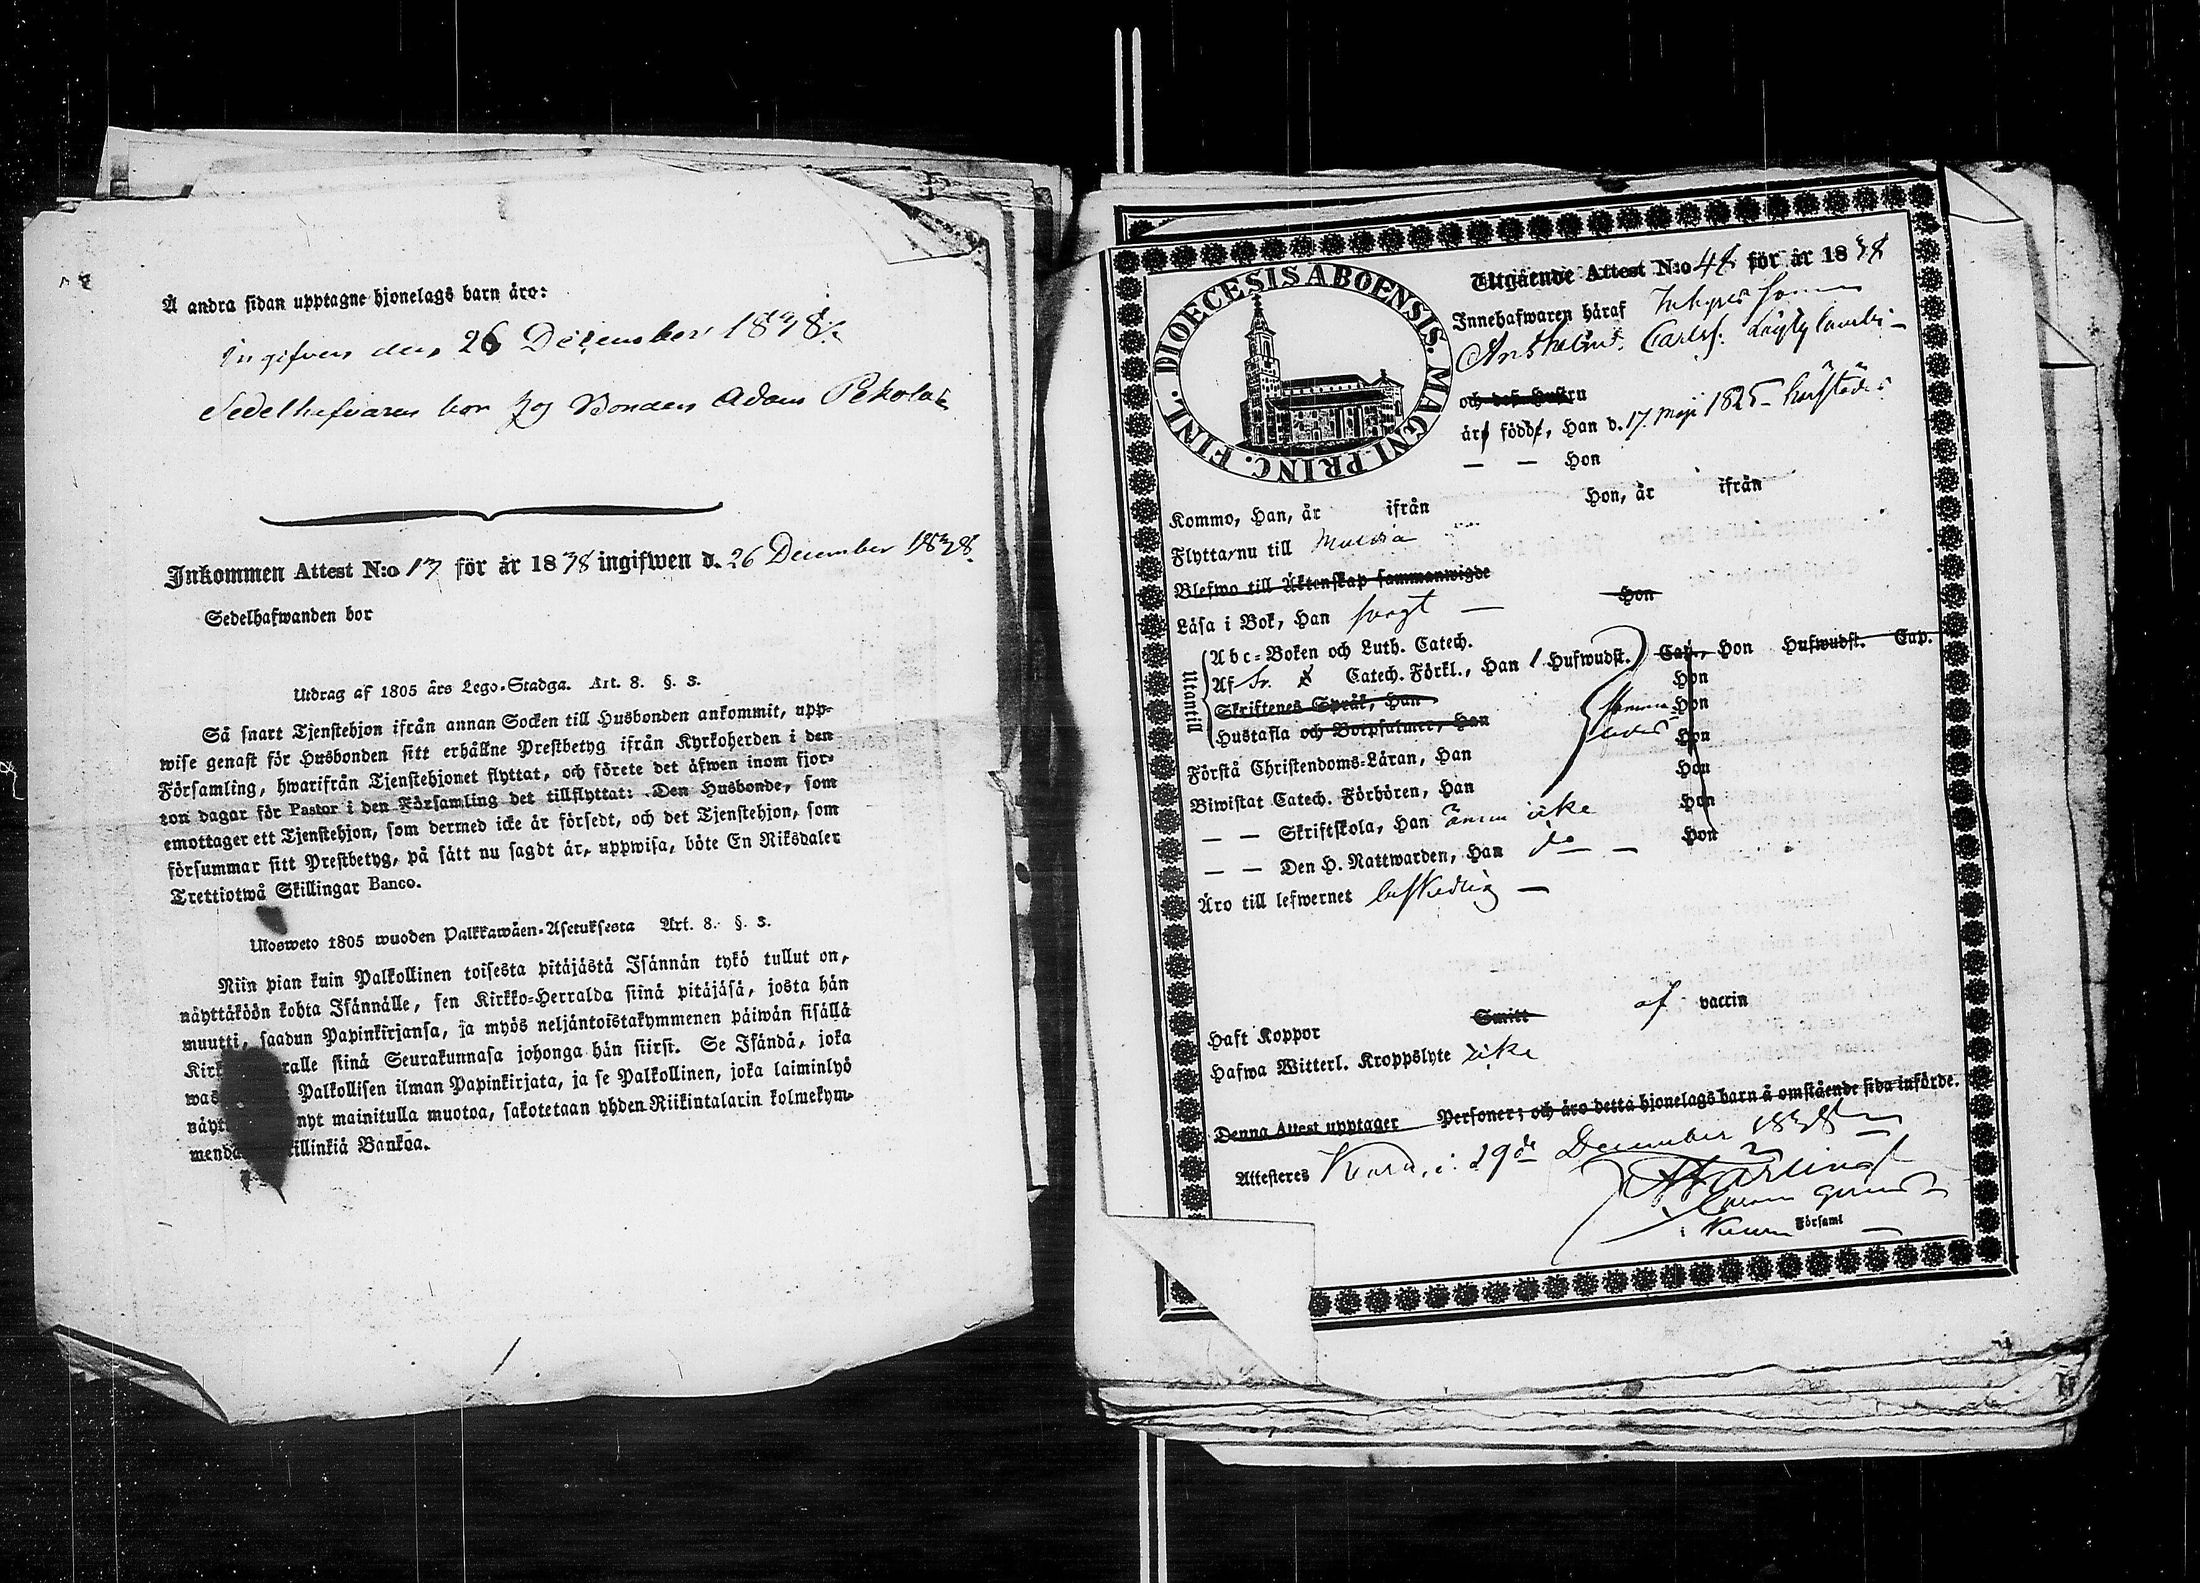 Å andra sidan upptagne hjonelags barn äro:
Ingifven den 26 December 1838
Sedelhafvaren bor hos Bonden Adam Pekola
Inkommen Attest N:o 17 för år 1838 ingifwen d. 26 December 1838.
Sedelhafwanden bor
Utdrag af 1805 års Lego-Stadga. Art. 8. §. 3.
Så snart Tjenstehjon ifrån annan Socken till Husbonden ankommit, upp-
wise genast för Husbonden sitt erhållne Prestbetyg ifrån Kyrkoherden i den
Församling, hwarifrån Tjenstehjonet flyttat, och förete det äfwen inom fjor-
ton dagar för Pastor i den Församling det tillflyttat: Den Husbonde, som
emottager ett Tjenstehjon, som dermed icke är försedt, och det Tjenstehjon, som
försummar sitt Prestbetyg, på sätt nu sagdt är, uppwisa, böte En Riksdaler
Trettiotwå Skillingar Banco.
Ulosweto 1805 wuoden Palkkawäen-Asetuksesta Art. 8. §. 3.
Niin pian kuin Palkollinen toisesta pitäjästä Isännän tykö tullut on,
näyttäköön kohta Isännälle, sen Kirkko-Herralda siinä pitäjäsä, josta hän
muutti, saadun Papinkirjansa, ja myös neljäntoistakymmenen päiwän sisällä
Kirk ralle siinä Seurakunnasa johonga hän siirst. Se Isändä, joka
was Palkollisen ilman Papinkirjata, ja se Palkollinen, joka laiminlyö
näyt nyt mainitulla muotoa, sakotetaan yhden Riikintalarin kolmekym-
mendä illinkiä Bankoa.
DIOECESIS ABOENSIS. MAGNI PRINC. FINL.
Utgående Attest N:o 48 för år 1838
Innehafwaren häraf
Carlss.
och dess Hustru
äro födde, Han d. 17 Maji 1825
— — Hon
Kommo, Han, år ifrån Hon, år ifrån
Flytta nu till
Blefwo till Äktenskap sammanwigde
Läsa i Bok, Han swagt — Hon
Utantill
Abc-Boken och Luth. Catech.
Af Catech. Förkl., Han 1 Hufwudst. Cap., Hon Hufwudst. Cap.
Skriftenes Språk, Han Hon
Hustafla och Botpsalmer, Han Hon
Förstå Christendoms-Läran, Han Hon
Biwistat Catech. Förhören, Han Hon
— — Skriftskola, Han ännu icke Hon
— — Den H. Nattwarden, Han do — Hon
Äro till lefwernet beskedlig —
Haft Koppor Smitt af vaccin
Hafwa Witterl. Kroppslyte icke
Denna Attest upptager Personer; och äro detta hjonelags barn å omstående sida införde.
Attesteres December 1838
i Församl